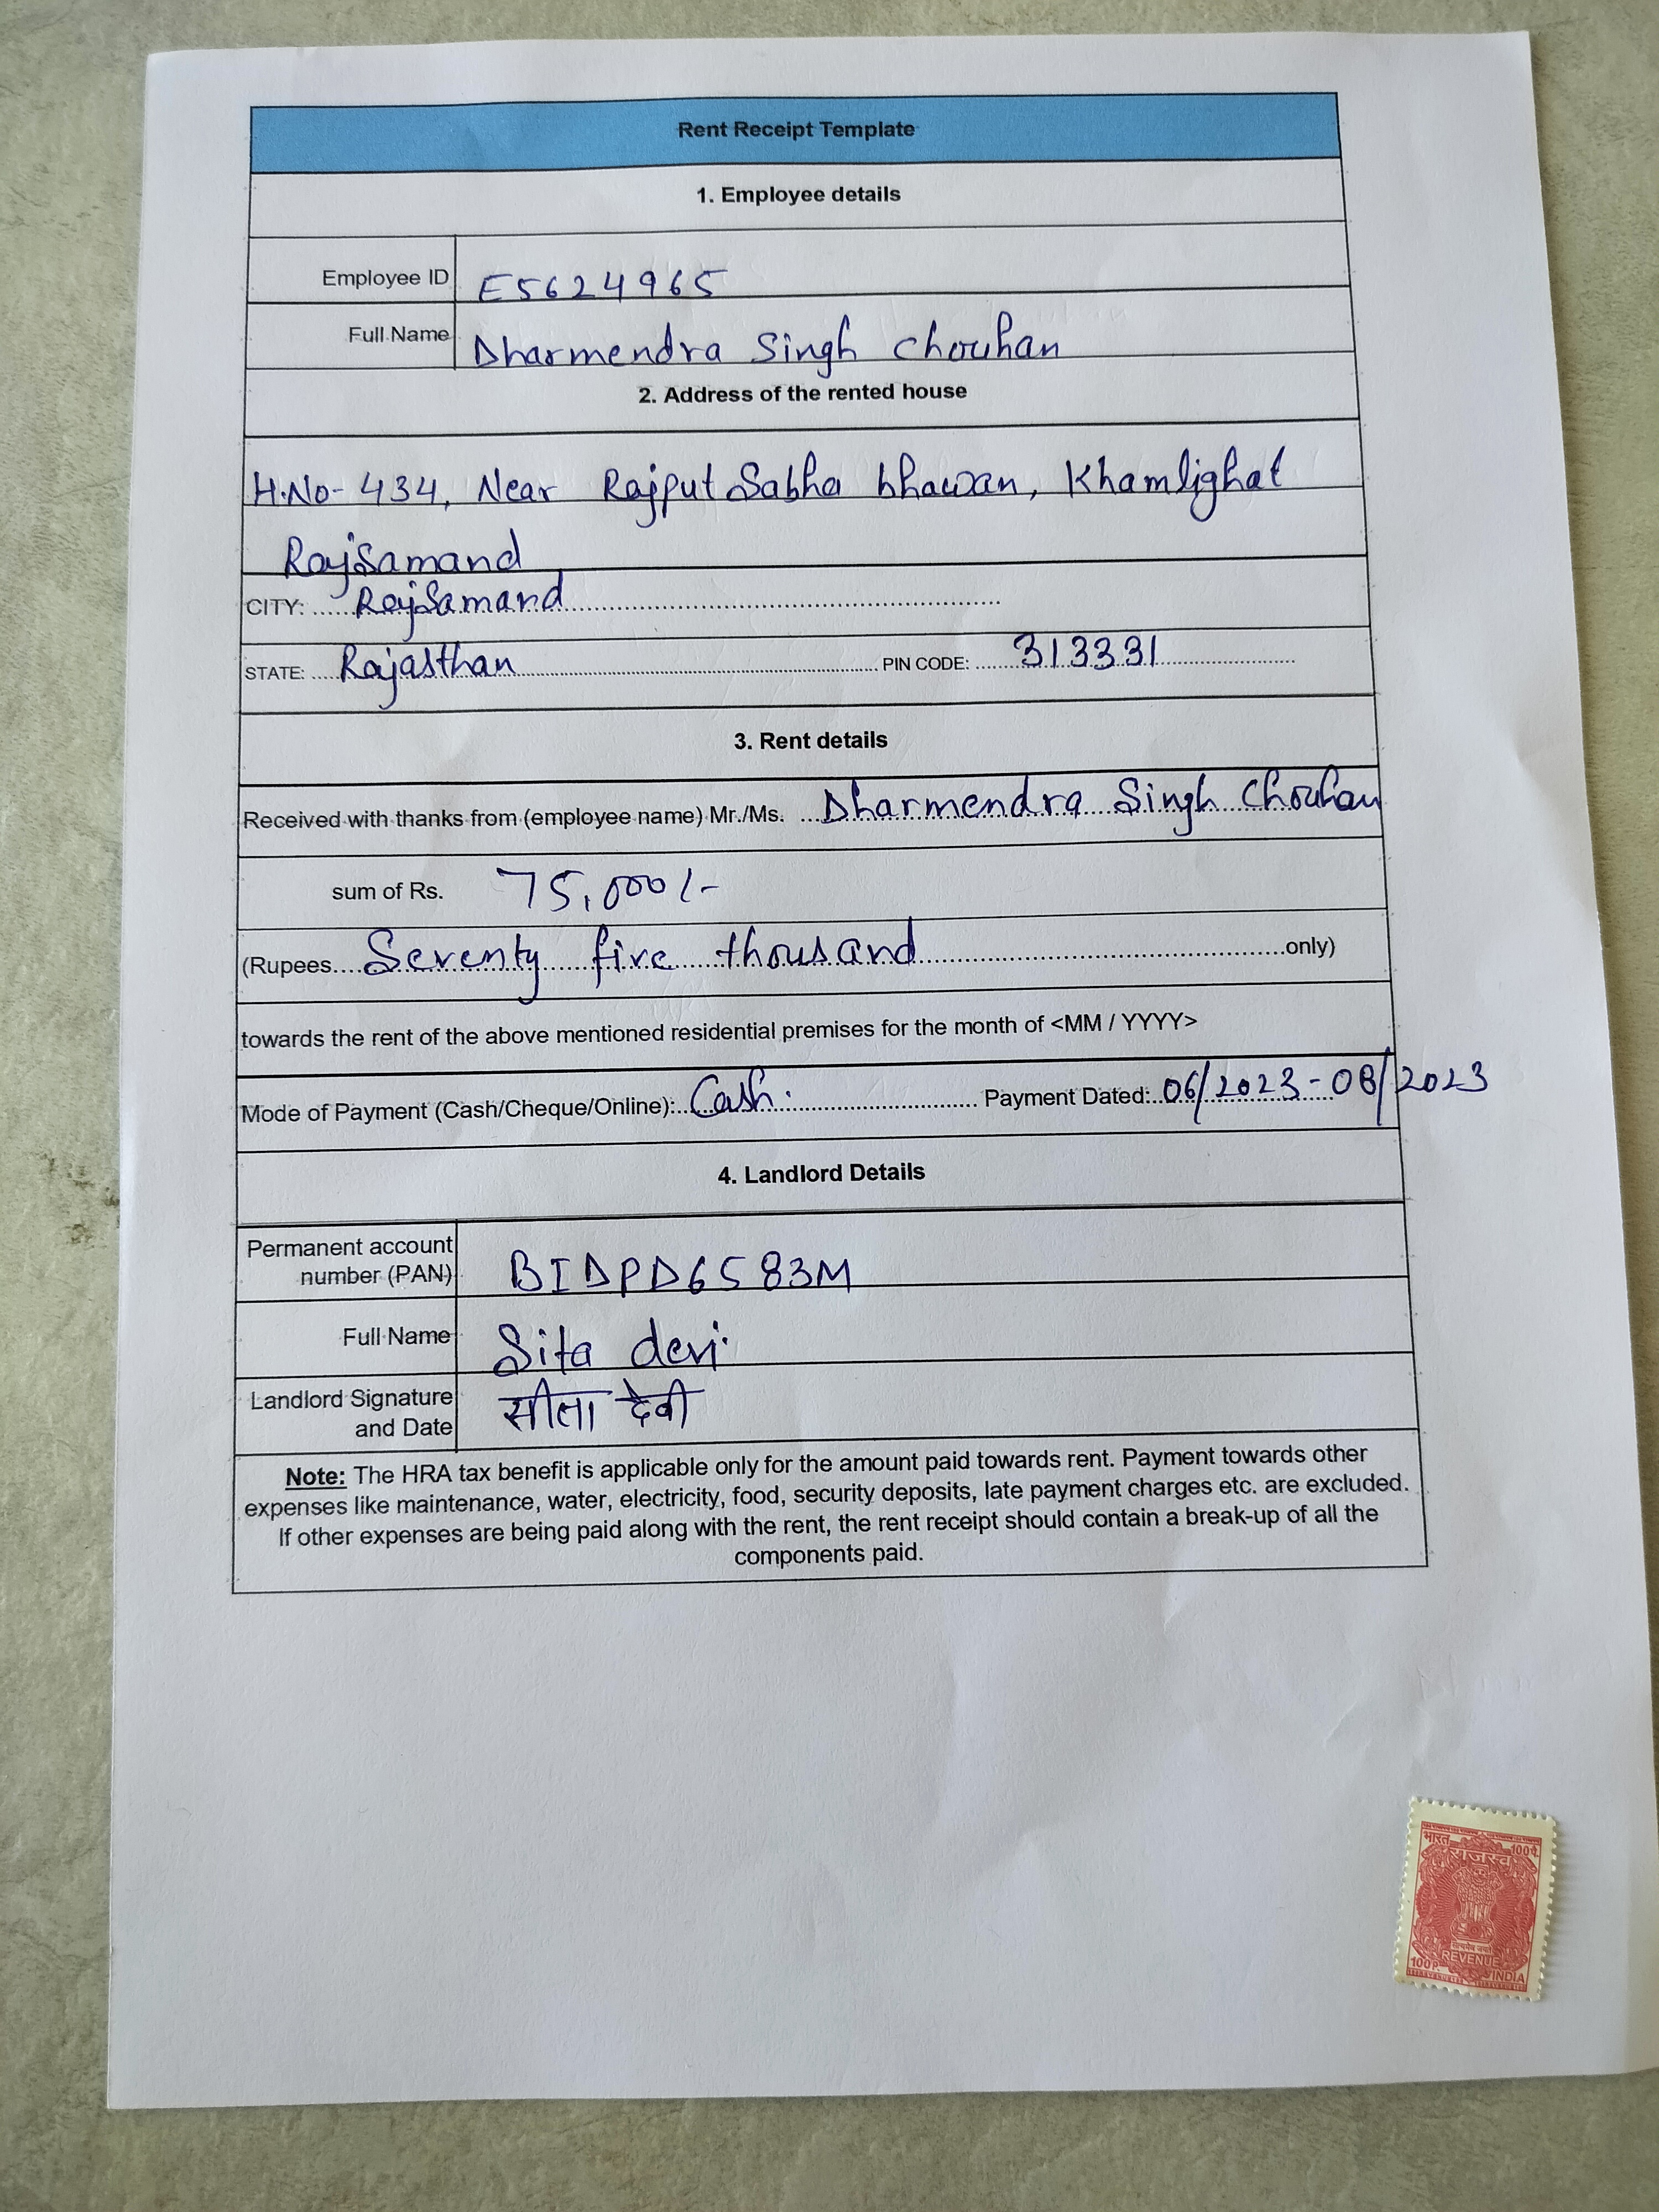 Rent Receipt Template
1. Employee details
Employee ID E5624965
Full Name Dharmendra Singh Chouhan
2. Address of the rented house
H.No- 434, Near Rajput Sabha bhawan, Khamlighat
RajSamand
CITY: ......RajSamand...........................................................
STATE: ....Rajasthan........................................................................ PIN CODE: .......313331.........................
3. Rent details
Received with thanks from (employee name) Mr./Ms. ...Dharmendra Singh Chouhan
sum of Rs. 75,000/-
(Rupees....Seventy five thousand........................................................only)
towards the rent of the above mentioned residential premises for the month of <MM / YYYY>
Mode of Payment (Cash/Cheque/Online):..Cash............................. Payment Dated:..06/2023-08/2023
4. Landlord Details
Permanent account
number (PAN) BIDPD6583M
Full Name Sita devi
Landlord Signature
and Date सीता देवी
Note: The HRA tax benefit is applicable only for the amount paid towards rent. Payment towards other
expenses like maintenance, water, electricity, food, security deposits, late payment charges etc. are excluded.
If other expenses are being paid along with the rent, the rent receipt should contain a break-up of all the
components paid.
भारत 100प.
राजस्व
REVENUE
100P. INDIA